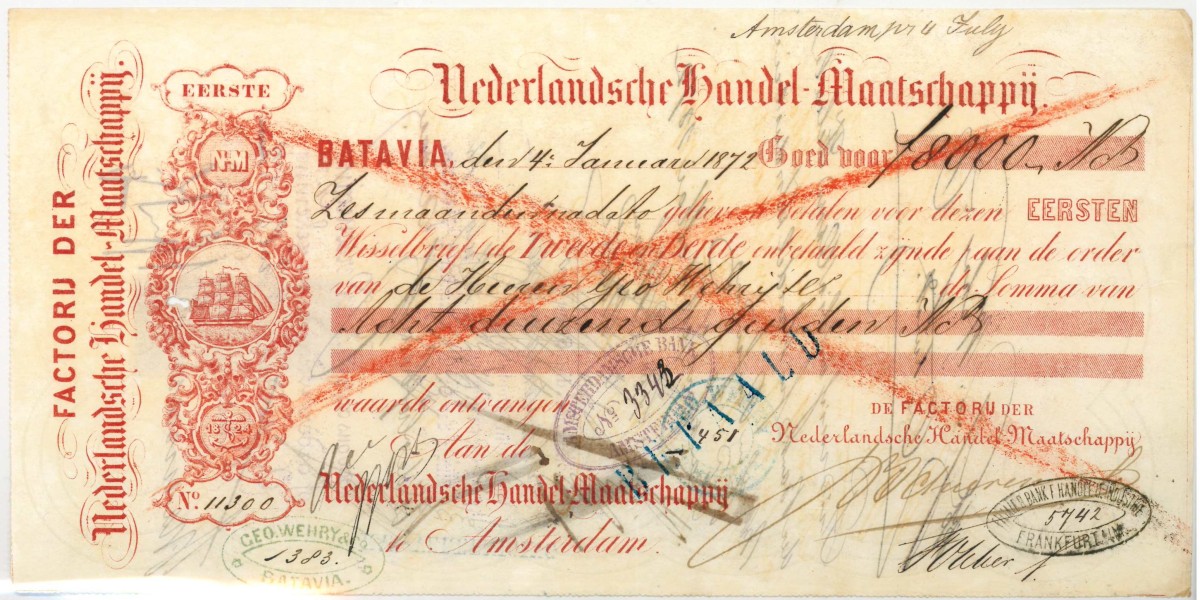 Amsterdam pr 4 July
FACTORIJ DER
Nederlandsche Handel-Maatschappij.
EERSTE
N-M
1824
No. 11300
Nederlandsche Handel-Maatschappij.
BATAVIA, den 4e Januari 1872 Goed voor f8000,- NC
Zes maanden na dato gelieve te betalen voor dezen EERSTEN
Wisselbrief (de Tweede en Derde onbetaald zijnde) aan de order
van de Heeren Geo Wehry & Co de Somma van
Acht duizend gulden NC
waarde ontvangen
Aan de
Nederlandsche Handel-Maatschappij
te Amsterdam.
DE FACTORIJ DER
Nederlandsche Handel-Maatschappij
AMSTERDAMSCHE BANK
No 3343
AMSTERDAM
BETAALD
451
GEO. WEHRY & Co
1383.
BATAVIA.
BANK F. HANDEL & INDUSTRIE
5742
FRANKFURT A/M.